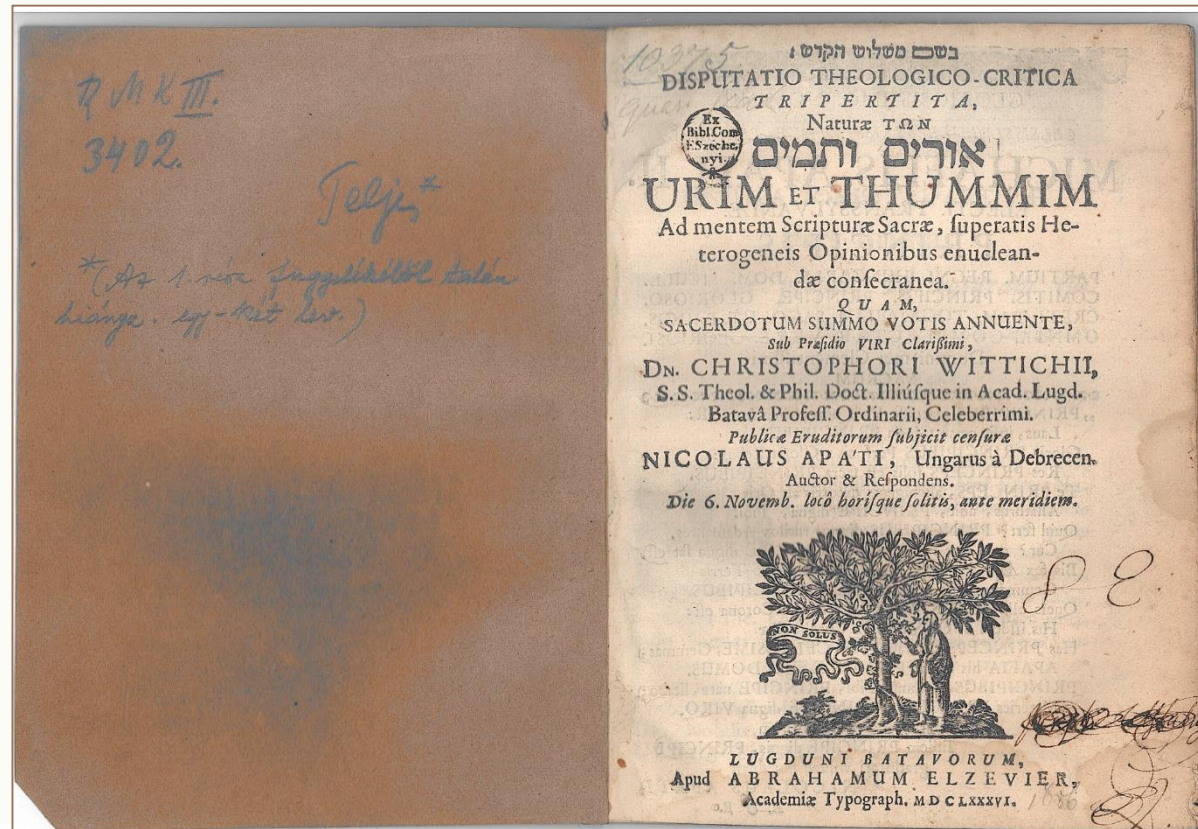 R M K III.
3402.
Teljes*
*(Az 1 rész függelékéből talán
hiányz. egy-két lev.)
10375
בשם משלוש הקדש :
DISPUTATIO THEOLOGICO-CRITICA
TRIPERTITA,
Naturæ ΤΩΝ
Ex
Bibl. Com
F. Széche-
nyi
אורים ותמים
URIM ET THUMMIM
Ad mentem Scripturæ Sacræ, ſuperatis He-
terogeneis Opinionibus enuclean-
dæ conſecranea.
QUAM,
SACERDOTUM SUMMO VOTIS ANNUENTE,
Sub Præſidio VIRI Clarißimi,
DN. CHRISTOPHORI WITTICHII,
S. S. Theol. & Phil. Doct. Illiúſque in Acad. Lugd.
Batavâ Profeſſ. Ordinarii, Celeberrimi.
Publicæ Eruditorum ſubjicit cenſuræ
NICOLAUS APATI, Ungarus à Debrecen.
Auctor & Reſpondens.
Die 6. Novemb. locô horiſque ſolitis, ante meridiem.
NON SOLUS
LUGDUNI BATAVORUM,
Apud ABRAHAMUM ELZEVIER,
Academiæ Typograph. MDCLXXXVI.
1686